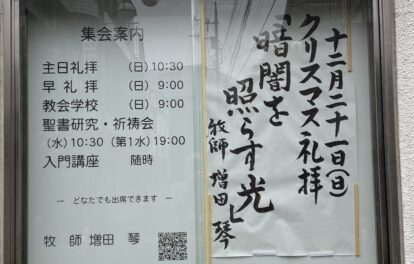 集会案内
主日礼拝 (日) 10:30
早礼拝 (日) 9:00
教会学校 (日) 9:00
聖書研究・祈祷会
(水) 10:30 (第1水) 19:00
入門講座 随時
― どなたでも出席できます ―
牧師 増田 琴
十二月二十一日(日)
クリスマス礼拝
「暗闇を
照らす光」
牧師 増田 琴